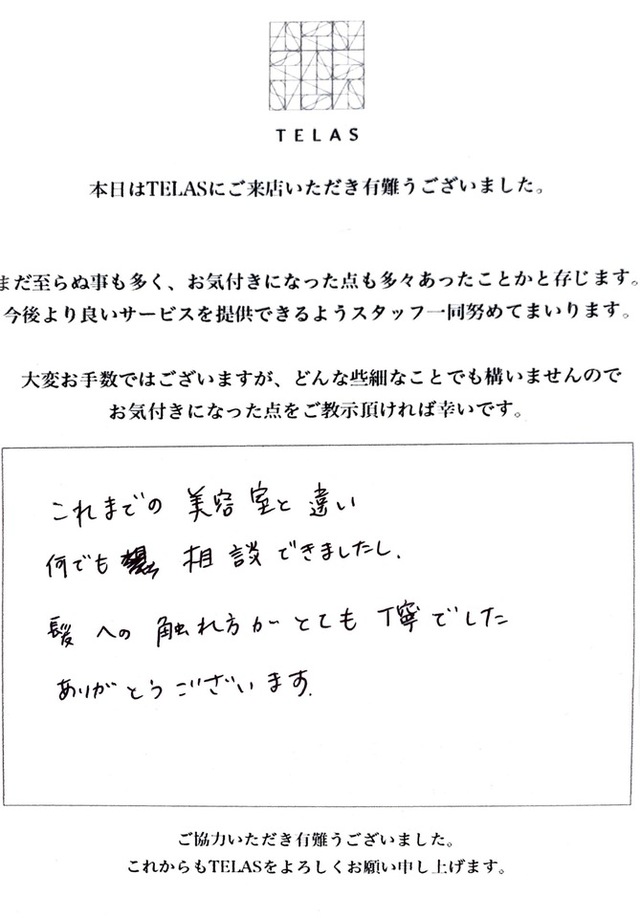 TELAS
本日はTELASにご来店いただき有難うございました。
まだ至らぬ事も多く、お気付きになった点も多々あったことかと存じます。
今後より良いサービスを提供できるようスタッフ一同努めてまいります。
大変お手数ではございますが、どんな些細なことでも構いませんので
お気付きになった点をご教示頂ければ幸いです。
これまでの 美容室と 違い
何でも 相談できましたし、
髪への 触れ方がとても 丁寧でした
ありがとうございます。
ご協力いただき有難うございました。
これからもTELASをよろしくお願い申し上げます。